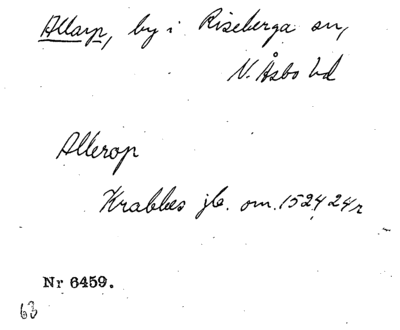 Allarp, by i Riseberga sn,
N. Åsbo hd
Allerop
Krabbes jb. om. 1524 24r
Nr 6459.
63